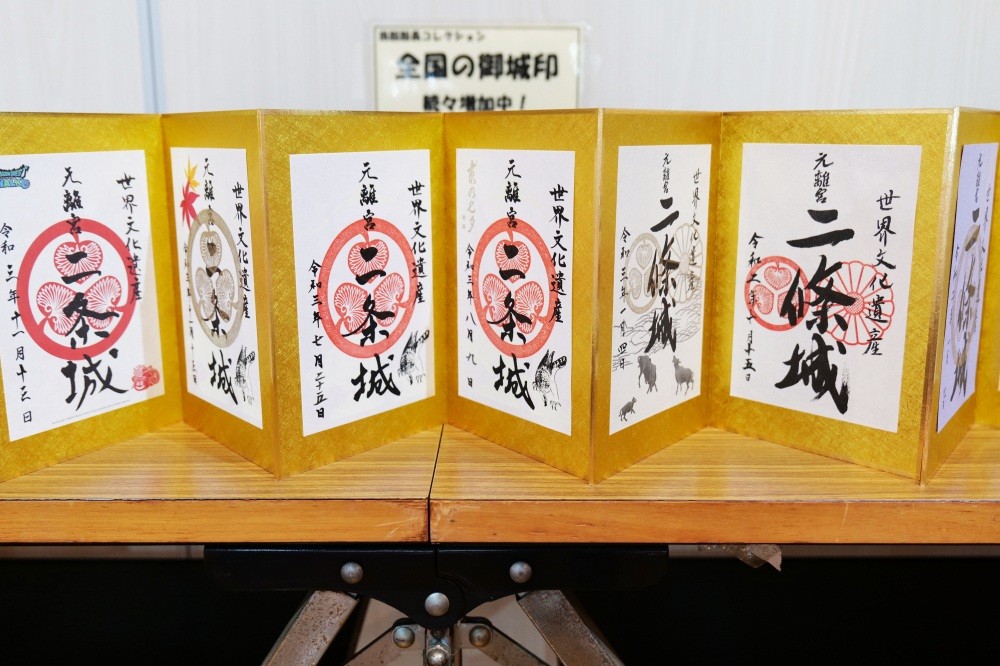 コレクション
全国の御城印
続々増加中!
世界文化遺産
元離宮
二条城
令和三年十一月十三日
世界文化遺産
元離宮
二条城
世界文化遺産
元離宮
二条城
令和三年七月二十五日
世界文化遺産
元離宮
二条城
令和三年八月九日
世界文化遺産
元離宮
二條城
令和三年一月四日
世界文化遺産
元離宮
二條城